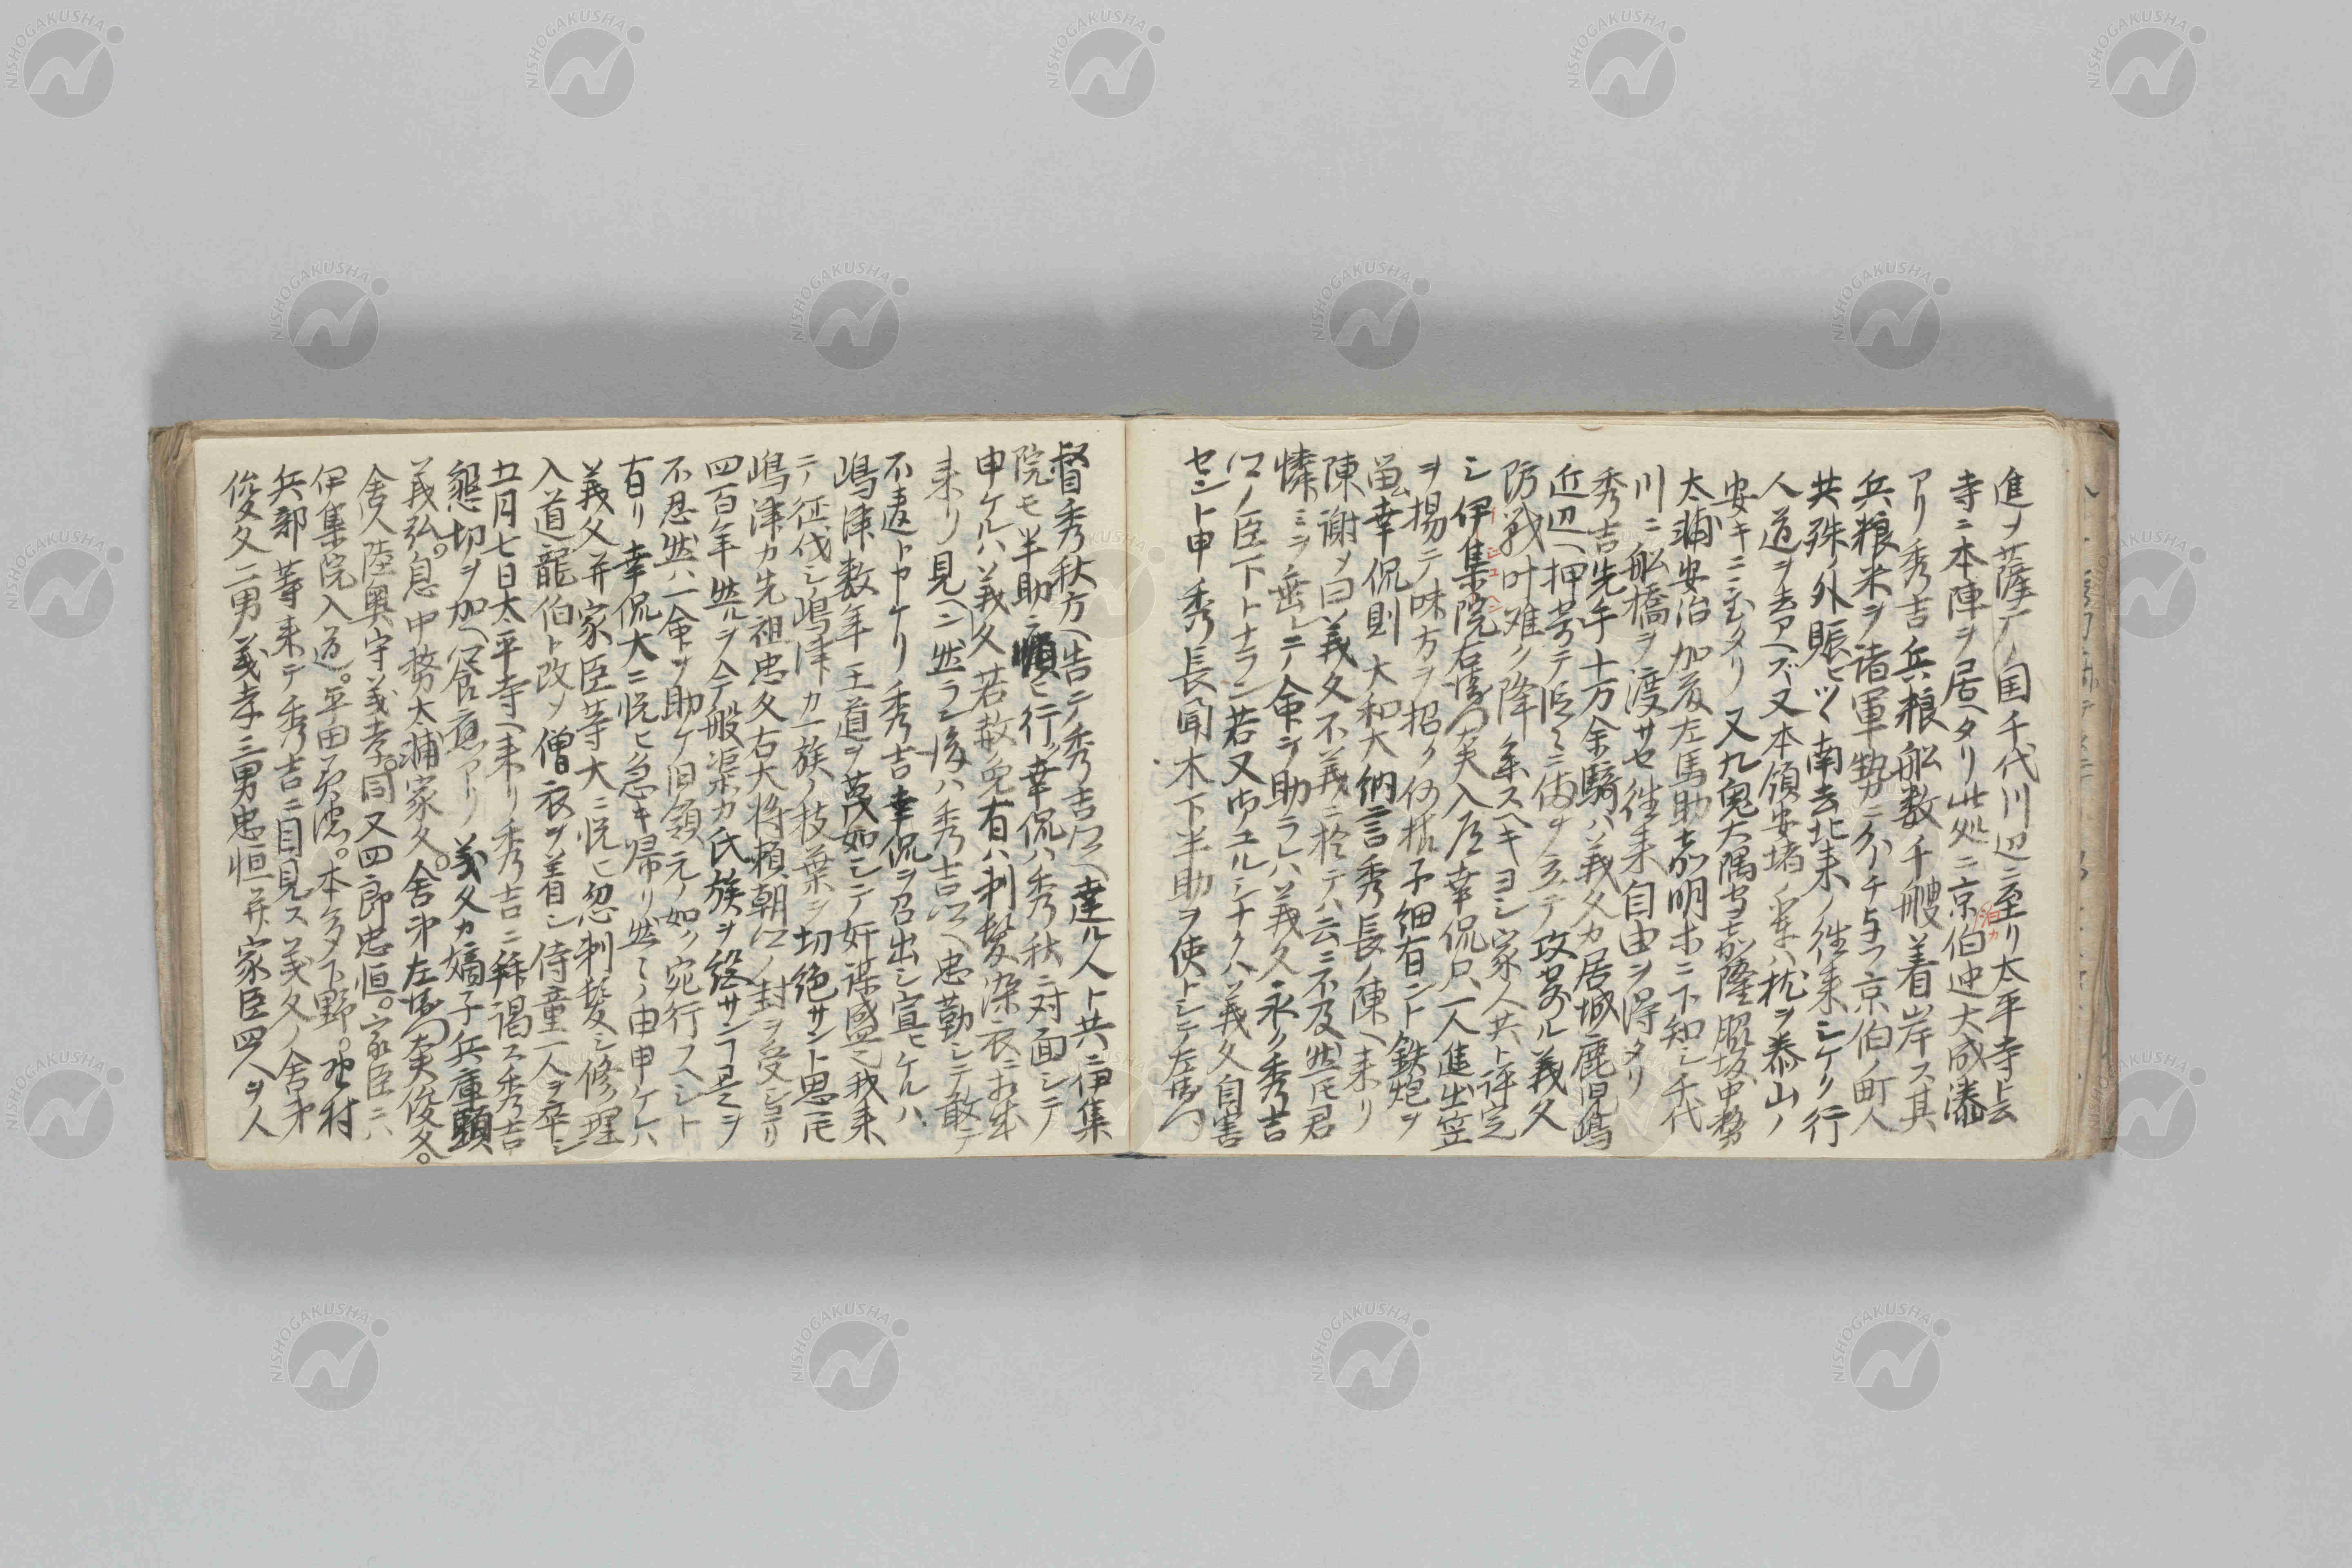 進メ薩广ノ国千代川辺ニ至リ太平寺ト云
寺ニ本陣ヲ居ヘタリ此処ニ京伯迚大成湊
アリ秀吉兵粮舩数千艘着岸ス其
兵粮米ヲ諸軍勢ニ分チ与フ京伯ノ町人
共殊ノ外賑ヒツヽ南去北来ノ往来シケク行
人道ヲ去アヘズ又本領安堵ノ輩ハ枕ヲ泰山ノ
安キニ至タリ又九鬼大隅守嘉隆脇坂中務
太輔安治加藤左馬助嘉明ホニ下知シ千代
川ニ舩橋ヲ渡サセ往来自由ヲ得タリ
秀吉先手十万余騎ハ義久カ居城鹿児嶋
近辺ヘ押寄テ
防戦叶難ク降参スヘキヨシ家人共ト評定
シ伊集院右衛門大夫入道幸侃只一人進出笠
ヲ揚テ味方ヲ招ク何様子細有ント鉄炮ヲ
幸侃則大和大納言秀長ノ陳ヘ来リ
陳謝メ曰義久不義ニ於テハ云ニ不及然レ𪜈君
憐ミヲ垂レテ一命ヲ助ラレハ義久永ク秀吉
公ノ臣下トナラン若又御ユルシナクハ義久自害
セント申秀長聞木下半助ヲ使トシテ左衛門
督秀秋方ヘ告テ秀吉公ヘ達ル人ト共ニ伊集
院モ半助ニ順ヒ行ク幸侃ハ秀秋ニ対面シテ
申ケルハ義久若赦免有ハ剃髪染衣ニ
来リ見ヘン然ラン後ハ秀吉公ヘ忠勤シテ敢テ
不違トヤケリ秀吉幸侃ヲ召出シ宣ヒケルハ
嶋津数年王道ヲ蔑如シテ奸謀盛也我来
テ征伐シ嶋津カ一族ノ枝葉ヲ切絶サント思𪜈
嶋津カ先祖忠久右大将頼朝公ノ封ヲ受シヨリ
四百年然ルヲ今般渠カ氏族ヲ絶サンヿ是ヲ
不忍然ハ一命ヲ助ケ旧領元ノ如ク宛行スント
有リ幸侃大ニ悦ヒ急キ帰リ然々ノ由申ケレハ
義久并家臣等大ニ悦ヒ忽剃髪シ修理
入道龍伯ト改メ僧衣ヲ着シ侍童一人ヲ卒シ
五月七日太平寺ヘ来リ秀吉ニ拝謁ス秀吉
懇切ヲ加ヘ饗應アリ義久カ嫡子兵庫頭
義弘。息中務太輔家久。舎弟左衛門大夫俊久。
舎人陸奥守義孝。同又四郎忠恒。家臣ニハ
伊集院入道。平田美濃。本多下野。野村
兵部等来テ秀吉ニ目見ス義久ノ舎弟
俊久二男義孝三男忠恒并家臣四人ヲ人